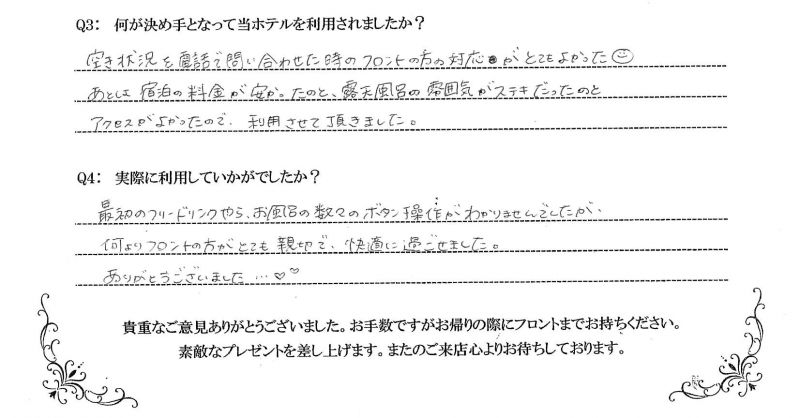 Q3： 何が決め手となって当ホテルを利用されましたか？
空き状況を電話で問い合わせた時のフロントの方の対応がとてもよかった☺
あとは宿泊の料金が安かったのと、露天風呂の雰囲気がステキだったのと
アクセスがよかったので、利用させて頂きました。
Q4： 実際に利用していかがでしたか？
最初のフリードリンクやら、お風呂の数々のボタン操作がわかりませんでしたが、
何よりフロントの方がとても親切で、快適に過ごせました。
ありがとうございました…♡♡
貴重なご意見ありがとうございました。お手数ですがお帰りの際にフロントまでお持ちください。
素敵なプレゼントを差し上げます。またのご来店心よりお待ちしております。